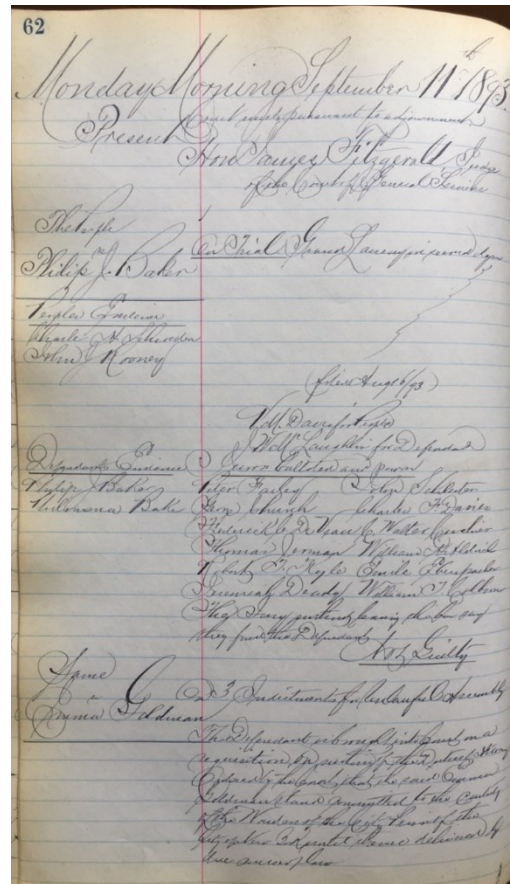 62
Monday Morning September 11th 1893.
Court met pursuant to adjournment
Present
Hon James Fitzgerald Judge
of the Court of General Sessions
The People
vs
Philip J. Baker
On Trial Grand Larceny in second degree
Peoples Evidence
Charles H Schroder
John J Rooney
(filed Aug 16/93)
V.M. Davis for People
J. W. McLaughlin for Defendant
Defendants Evidence
Jurors called and sworn
Philip J Baker
Philomena Baker
Peter Farley
John Schlester
Church
Charles F Davies
Frederick
Walter
Thomas Jerman William H Aldrich
Robert F. Kyle Emile
Jeremiah Deady William T
They say without leaving the box say
they find the Defendant
Not Guilty
Same
vs
Emma Goldman
On 3 Indictments for Unlawful Assembly
The Defendant is brought into Court on a
requisition the District Attorney
Ordered by the Court that the said Emma
Goldman stand committed to the custody
of the Warden of the City Prison of the
City of New York until thence delivered by
due course of law